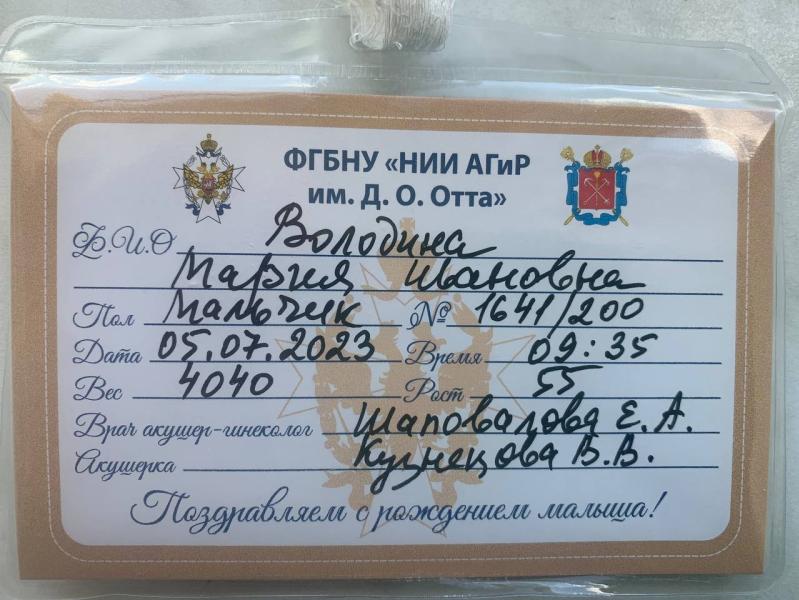 ФГБНУ «НИИ АГиР
им. Д. О. Отта»
Ф.И.О Володина
Мария Ивановна
Пол Мальчик № 1641/200
Дата 05.07.2023 Время 09:35
Вес 4040 Рост 55
Врач акушер-гинеколог Шаповалова Е.А.
Акушерка Кузнецова В.В.
Поздравляем с рождением малыша!